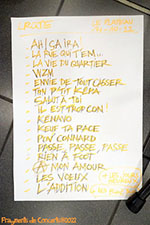 LE PLATEAU
AH! ÇA IRA!
LA RUE QUI T'EM...
LA VIE DU QUARTIER
VIZM
ENVIE DE TOUT CASSER
TON P'TIT KÉPA
SALUT À TOI
IL EST TROP CON!
KENAVO
KEUF TA RACE
POV' CONNARD
PASSE, PASSE, PASSE
RIEN À FOUT
MON AMOUR
LES VOEUX
L'ADDITION
Fragments de Concerts ©2022